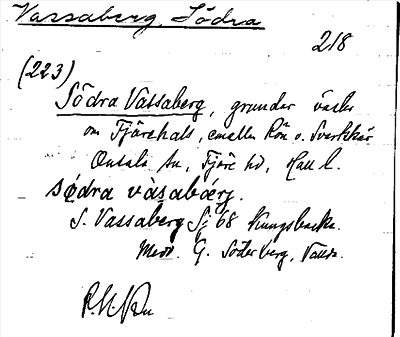 Vassaberg, Södra
218
(223)
Södra Vassaberg, grunder väster
om Fjärehals, emellan Rön o. Svartskär
Onsala sn, Fjäre hd, Hall l.
södra vàsabærj.
S. Vassaberg Sj 68 Kungsbacka.
Medd. G. Söderberg, Vallda.